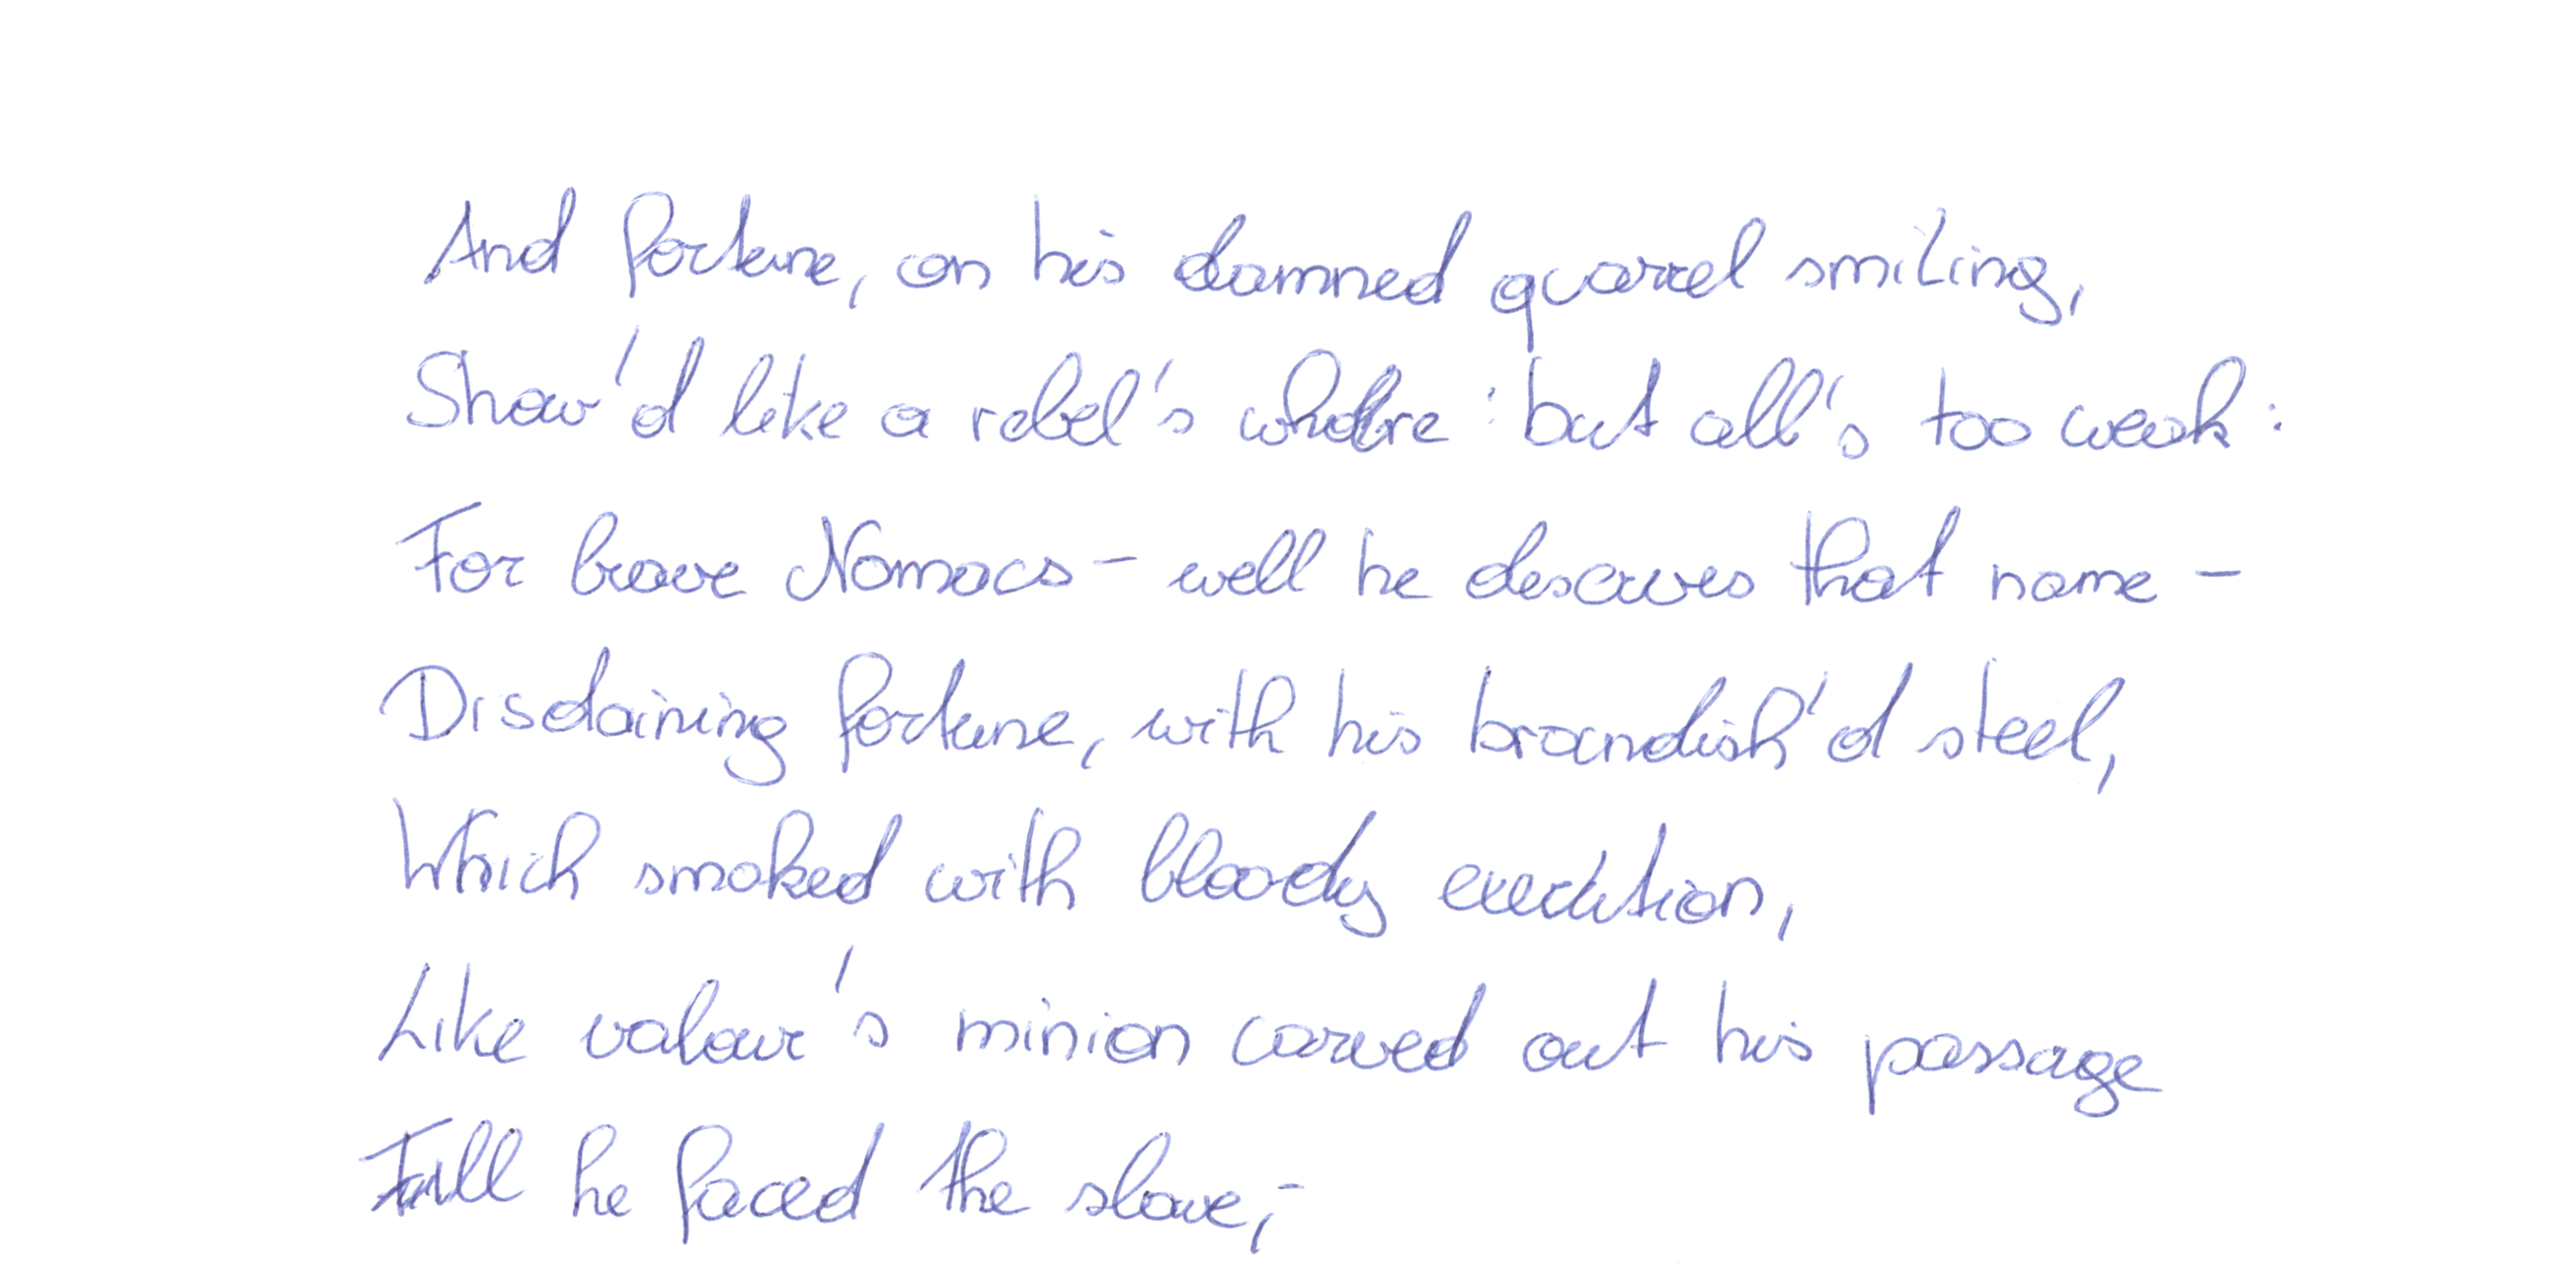 And fortune, on his damned quarrel smiling,
Show'd like a rebel's whore : but all's too weak :
For brave Nomacs - well he deserves that name -
Disdaining fortune, with his brandish'd steel,
Which smoked with bloody execution,
Like valour's minion carved out his passage
Till he faced the slave;-